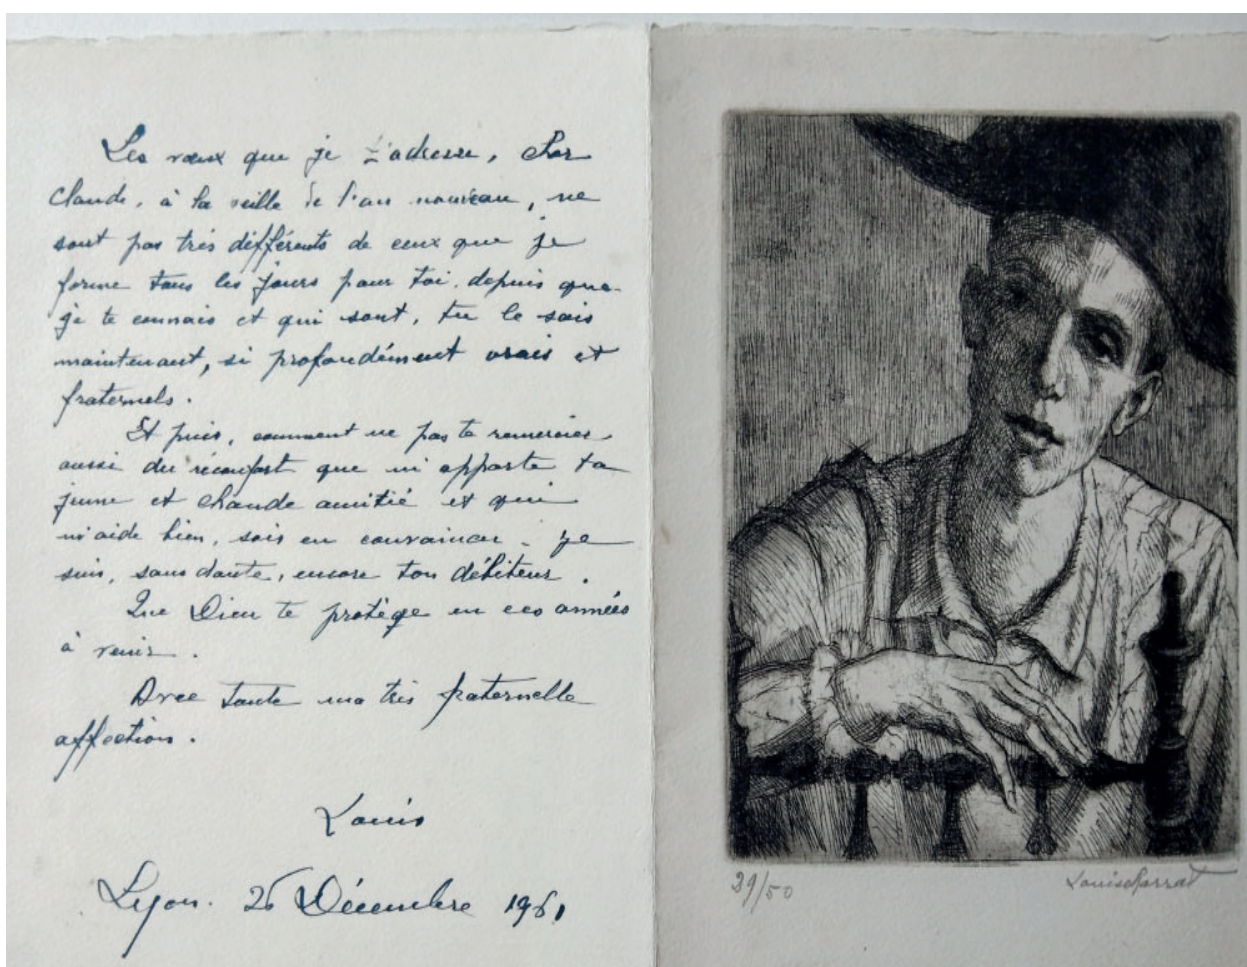 Les vœux que je t'adresse, cher
Claude, à la veille de l'an nouveau, ne
sont pas très différents de ceux que je
forme tous les jours pour toi, depuis que
je te connais et qui sont, tu le sais
maintenant, si profondément vrais et
fraternels.
Et puis, comment ne pas te remercier
aussi du réconfort que m'apporte ta
jeune et chaude amitié et qui
m'aide bien, sois en convaincu. Je
suis, sans doute, encore ton débiteur.
Que Dieu te protège en ces années
à venir.
Avec toute ma très fraternelle
affection.
Louis
Lyon. 26 Décembre 1961
39/50
Louis Charrat